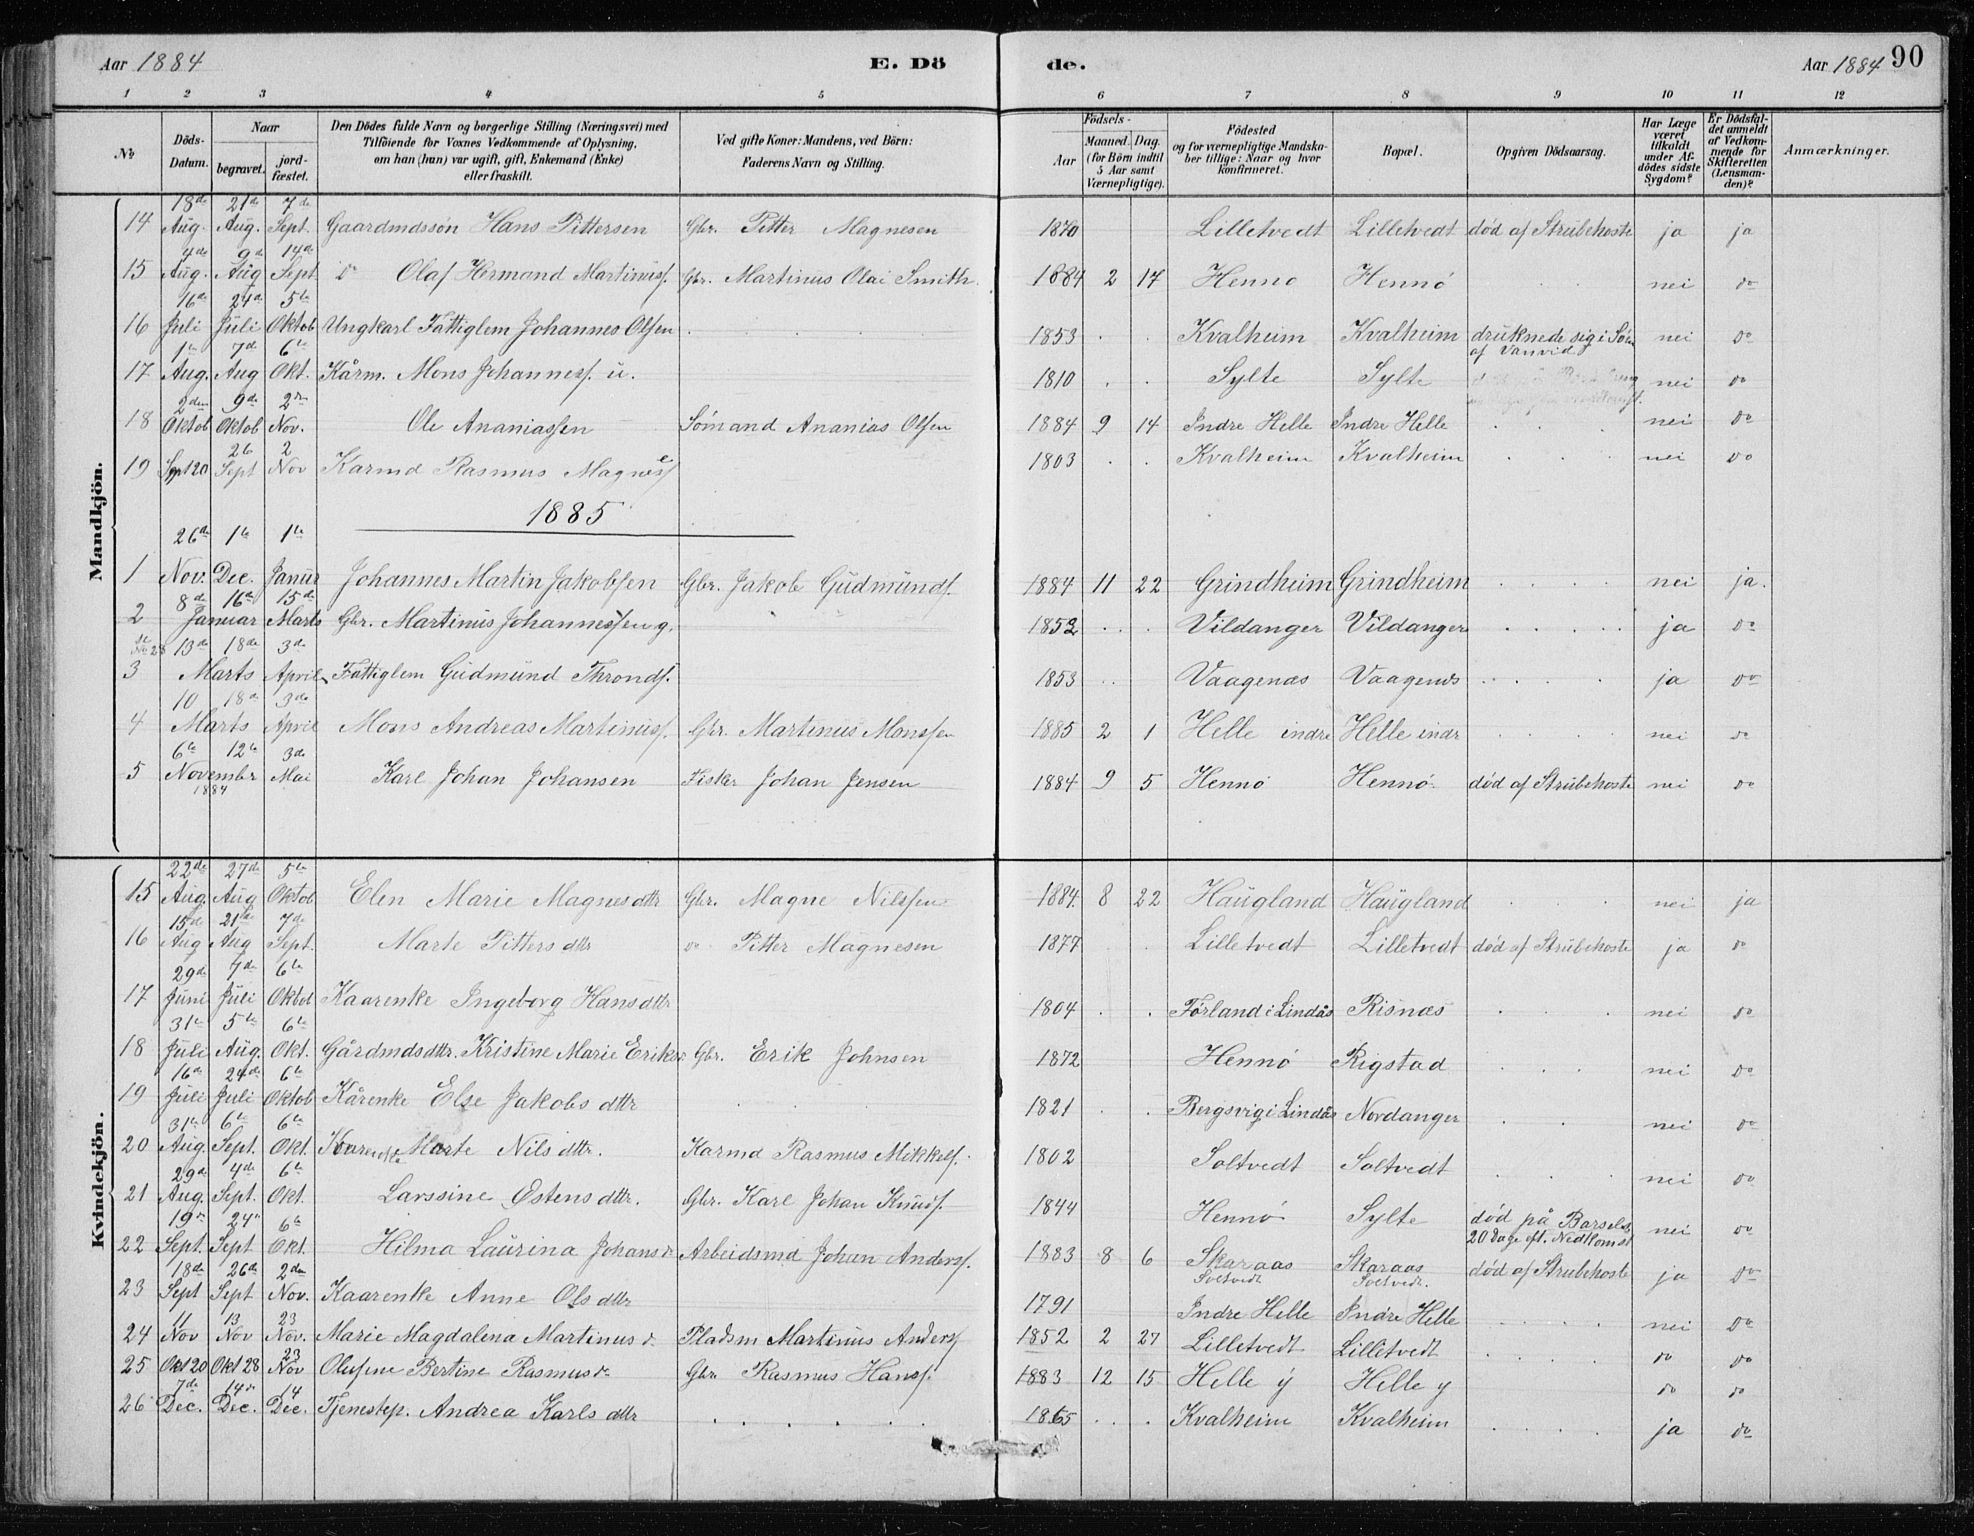 Aar 1884 E. Dö de. Aar 1884 90
1 2 3 4 5 6 7 8 9 10 11 12
No Döds-Datum. Naar begravet. jordfæstet. Den Dödes fulde Navn og borgerlige Stilling (Næringsvei) med Tilföiende for Voxnes Vedkommende af Oplysning, om han (hun) var ugift, gift, Enkemand (Enke) eller fraskilt. Ved gifte Koner: Mandens, ved Börn: Faderens Navn og Stilling. Födsels- Aar Maaned. Dag. (for Börn indtil 5 Aar samt Værnepligtige). Födested og for værnepligtige Mandskaber tillige: Naar og hvor konfirmeret. Bopæl. Opgiven Dödsaarsag. Har Læge været tilkaldt under Afdödes sidste Sygdom? Er Dödsfaldet anmeldt af Vedkommende for Skifteretten (Lensmanden)? Anmærkninger.
Mandkjön.
14 18de Aug. 21de Aug. 7de Sept. Gaardmdssön Hans Pittersen Gbr. Pitter Magnesen 1870 Lilletvedt Lilletvedt död af Strubehoste ja ja
15 4de Aug. 9de Aug 14de Sept do Olaf Hermand Martinuss. Gbr. Martinus Olai Smith. 1884 2 17 Henno Hennö nei do
16 16de Juli 24de Juli 5te Oktob Ungkarl Fattiglem Johannes Olsen 1853 Kvalheim Kvalheim druknede sig i Söen af Vanvid nei do
17 1te Aug. 7de Aug 6te Okt. Kårm. Mons Johanness. u. 1810 Sylte Sylte nei do
18 2den Oktob 9de Oktob 2den Nov. Ole Ananiassen Sömand Ananias Olsen 1884 9 14 Indre Helle Indre Helle nei do
19 Sept 20 26 Sept 2 Nov Karmd Rasmus Magnes 1803 Kvalheim Kvalheim nei do
1885
1 26de Nov. 1te Dec. 1te Janur Johannes Martin Jakobsen Gbr. Jakob Gudmunds. 1884 11 22 Grindheim Grindheim nei ja.
2 8de 16de Januar 15de Marts Gbr. Martinus Johannessen g. 1852 Vildanger Vildanger ja do
3 13de 18de Marts 3de April Fattiglem Gudmund Thronds. 1853 Vaagenæs Vaagenæs ja do
4 10 18de Marts 3de April Mons Andreas Martinuss. Gbr. Martinus Monssen 1885 2 1 Helle indre Helle indr nei do
5 6te 12te November 1884 3de Mai Karl Johan Johansen Fisker Johan Jensen 1884 9 5 Hennö Hennö död af Strubehoste nei do
Kvindekjön.
15 22de Aug. 27de Aug 5te Oktob Elen Marie Magnesdttr Gbr. Magne Nilssen 1884. 8 22 Haugland Haugland nei ja
16 15de Aug 21de Aug 7de Sept. Marte Pittersdttr do Pitter Magnesen 1877 Lilletvedt Lilletvedt död af Strubehoste ja do
17 29de Juni 7de Juli 6te Oktob Kaarenke Ingeborg Hansdttr 1804 Förland i Lindås Risnæs nei do
18 31te Juli 5te Aug. 6te Okt. Gårdmdsdttr. Kristine Marie Eriksd Gbr. Erik Johnsen 1872 Hennö Rigstad nei do
19 16de Juli 24de Juli 6te Oktob Kårenke Else Jakobsdttr 1821 Bergsvig i Lindås Nordanger nei do
20 31te Aug. 6te Sept. 6te Okt. Karenke Marte Nilsdttr. Karmd Rasmus Mikkels. 1802 Soltvedt Soltvedt nei do
21 29de Aug. 4de Sept. 6te Okt. Larssine Østensdttr. Gbr. Karl Johan Knuds. 1844 Hennö Sylte död på Barsels. 20 Dage eft. Nedkomst nei do
22 19de Sept. 24de Sept 6te Okt. Hilma Laurina Johansd. Arbeidsmd Johan Anders. 1883 8 6 Skaraas Soltvedt Skaraas Soltvedt. död af Strubehoste ja do
23 18de Sept 26de Sept 2den Nov. Kaarenke Anne Olsdttr 1791 Indre Helle Indre Helle nei do
24 11 Nov 13 Nov 23 Nov. Marie Magdalena Martinusd. Pladsm Martinus Anders 1852 2 27 Lilletvedt Lilletvedt do do
25 Okt 20 Okt 28 23 Nov Olufine Bertine Rasmusd. Gbr. Rasmus Hanss. 1883 12 15 Helle y Helle y do do
26 7de Dec. 14de Dec. 14 Dec. Tjenestep. Andrea Karlsdttr 1865 Kvalheim Kvalheim ja do